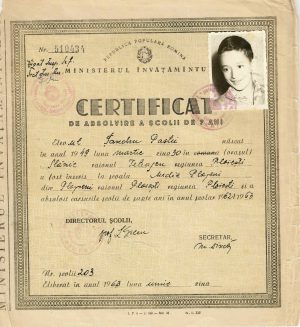 Nr. 510434
REPUBLICA POPULARĂ ROMÎNĂ
MINISTERUL ÎNVĂȚĂMÎNTULUI
CERTIFICAT
DE ABSOLVIRE A ȘCOLII DE 7 ANI
Elevul Sandu născut
în anul 1949 luna martie ziua 30 în comuna (orașul)
raionul Teleajen regiunea Ploiești
a fost înscris la școala Medie
din raionul Ploiești regiunea Ploiești și a
absolvit cursurile școlii de șapte ani în anul școlar 1962/1963
DIRECTORUL ȘCOLII,
SECRETAR,
Nr. școlii 203
Eliberat în anul 1963 luna iunie ziua
MINISTERUL